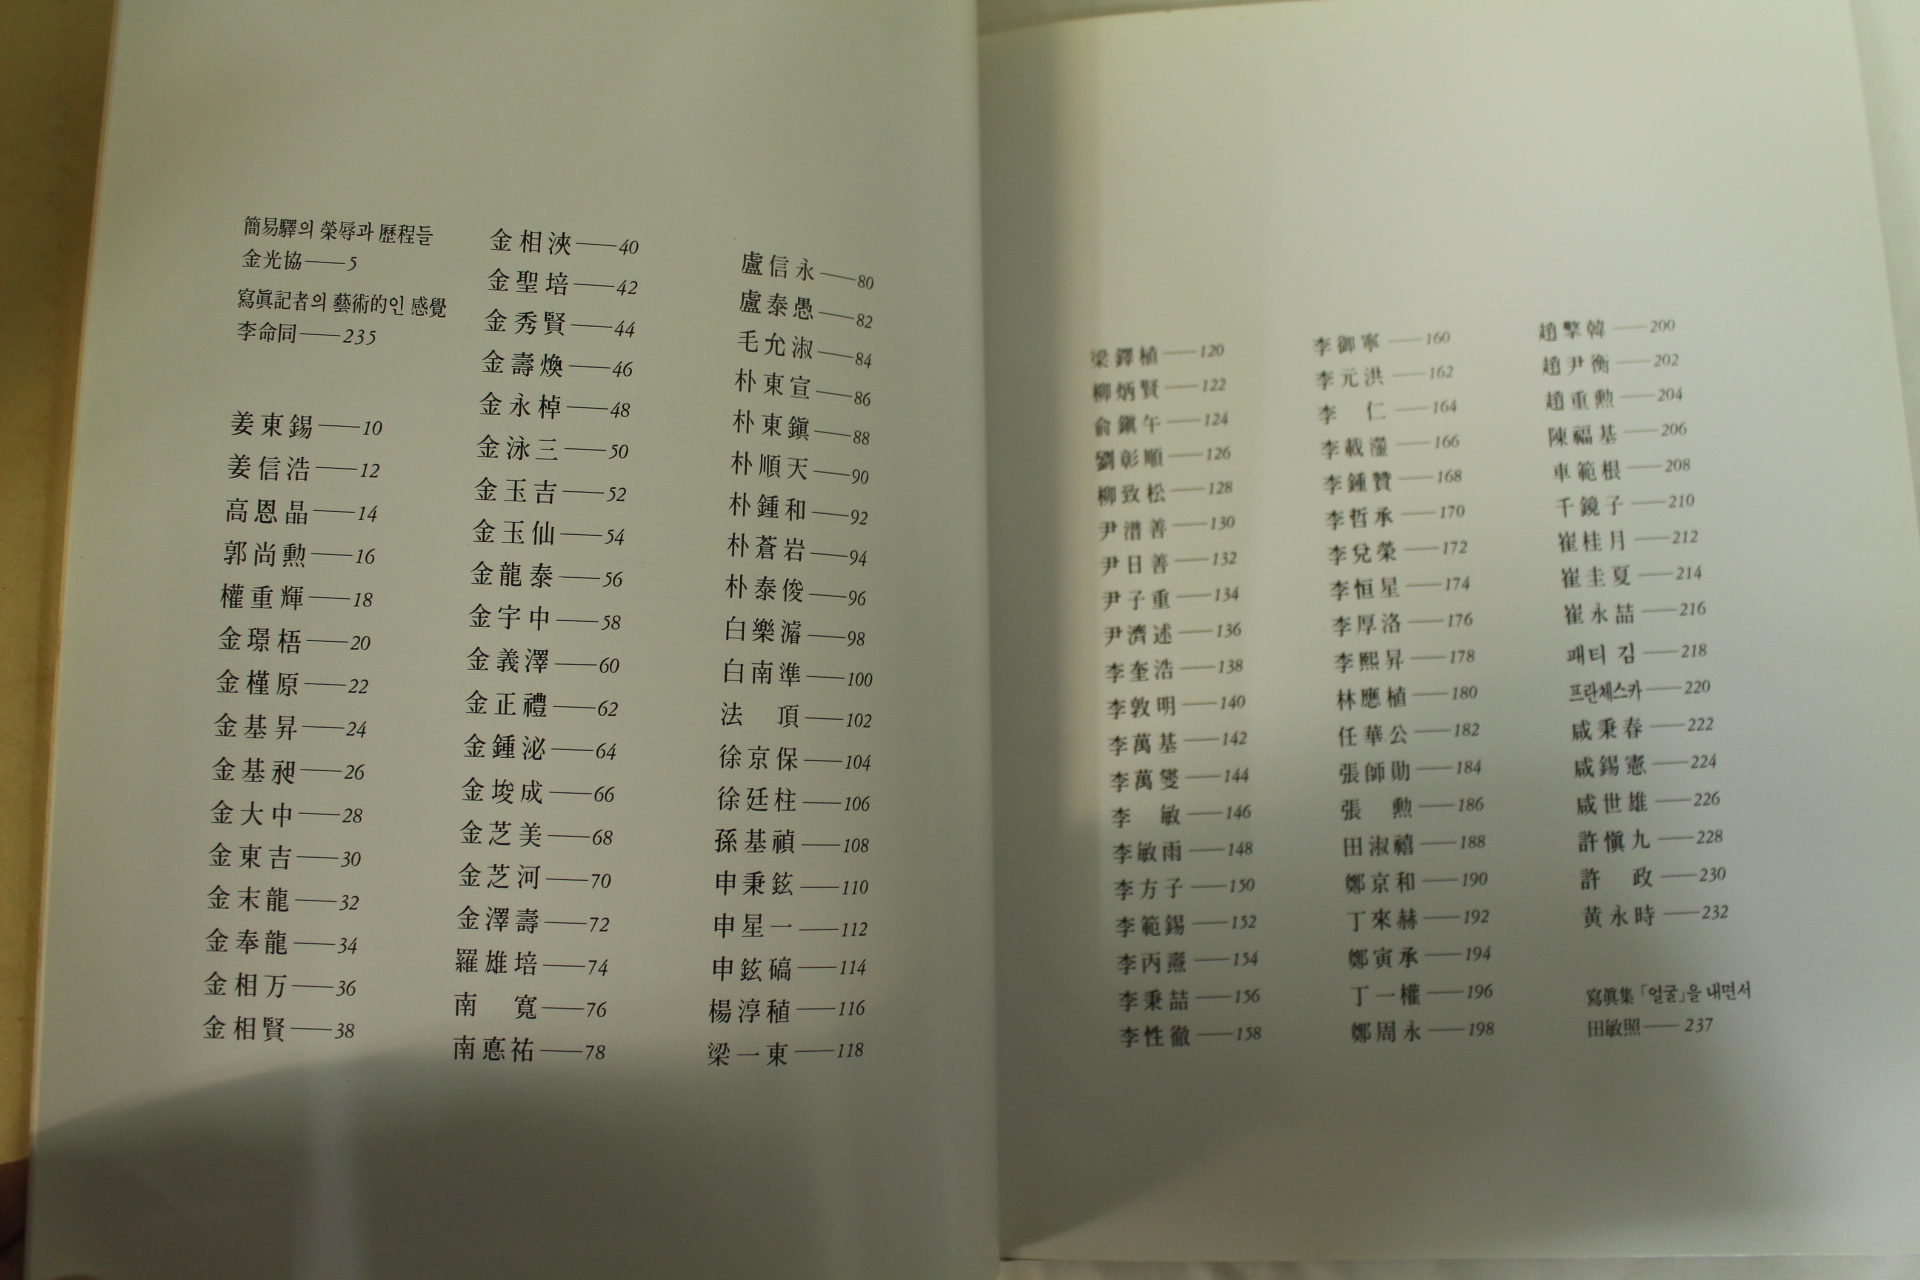 簡易驛의 榮辱과 歷程들
金光協——5
寫眞記者의 藝術的인 感覺
李命同——235
姜東錫——10
姜信浩——12
高恩晶——14
郭尚勲——16
權重輝——18
金璟梧——20
金槿原——22
金基昇——24
金基昶——26
金大中——28
金東吉——30
金末龍——32
金奉龍——34
金相万——36
金相賢——38
金相浹——40
金聖培——42
金秀賢——44
金壽煥——46
金永棹——48
金泳三——50
金玉吉——52
金玉仙——54
金龍泰——56
金宇中——58
金義澤——60
金正禮——62
金鍾泌——64
金埈成——66
金芝美——68
金芝河——70
金澤壽——72
羅雄培——74
南 寬——76
南悳祐——78
盧信永——80
盧泰愚——82
毛允淑——84
朴東宣——86
朴東鎭——88
朴順天——90
朴鍾和——92
朴蒼岩——94
朴泰俊——96
白樂濬——98
白南準——100
法 頂——102
徐京保——104
徐廷柱——106
孫基禎——108
申秉鉉——110
申星一——112
申鉉碻——114
楊淳稙——116
梁一東——118
梁鐸植——120
柳炳賢——122
俞鎭午——124
劉彰順——126
柳致松——128
尹潽善——130
尹日善——132
尹子重——134
尹濟述——136
李奎浩——138
李敦明——140
李萬基——142
李萬燮——144
李 敏——146
李敏雨——148
李方子——150
李範錫——152
李丙燾——154
李秉喆——156
李性徹——158
李御寧——160
李元洪——162
李 仁——164
李載瀅——166
李鍾贊——168
李哲承——170
李兌榮——172
李恒星——174
李厚洛——176
李熙昇——178
林應植——180
任華公——182
張師勛——184
張 勲——186
田淑禧——188
鄭京和——190
丁來赫——192
鄭寅承——194
丁一權——196
鄭周永——198
趙擎韓——200
趙尹衡——202
趙重勲——204
陳福基——206
車範根——208
千鏡子——210
崔桂月——212
崔圭夏——214
崔永喆——216
패티 김——218
프란체스카——220
咸秉春——222
咸錫憲——224
咸世雄——226
許愼九——228
許 政——230
黄永時——232
寫眞集「얼굴」을 내면서
田敏照——237